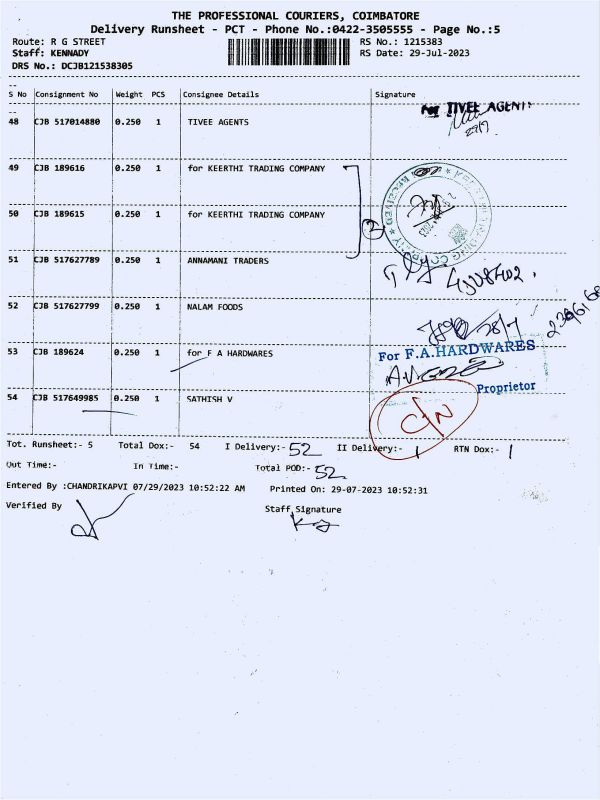 THE PROFESSIONAL COURIERS, COIMBATORE
Delivery Runsheet - PCT - Phone No.:0422-3505555 - Page No.:5
Route: R G STREET RS No.: 1215383
Staff: KENNADY RS Date: 29-Jul-2023
DRS No.: DCJB121538305
S No Consignment No Weight PCS Consignee Details Signature
48 CJB 517014880 0.250 1 TIVEE AGENTS
For TIVEE AGENT
49 CJB 189616 0.250 1 for KEERTHI TRADING COMPANY
50 CJB 189615 0.250 1 for KEERTHI TRADING COMPANY
2
RECEIVED
51 CJB 517627789 0.250 1 ANNAMANI TRADERS
52 CJB 517627799 0.250 1 NALAM FOODS
53 CJB 189624 0.250 1 for F A HARDWARES
For F.A.HARDWARES
Proprietor
54 CJB 517649985 0.250 1 SATHISH V
C/N
Tot. Runsheet:- 5 Total Dox:- 54 I Delivery:- 52 II Delivery:- 1 RTN Dox:- 1
Out Time:- In Time:- Total POD:- 52
Entered By :CHANDRIKAPVI 07/29/2023 10:52:22 AM Printed On: 29-07-2023 10:52:31
Verified By Staff Signature